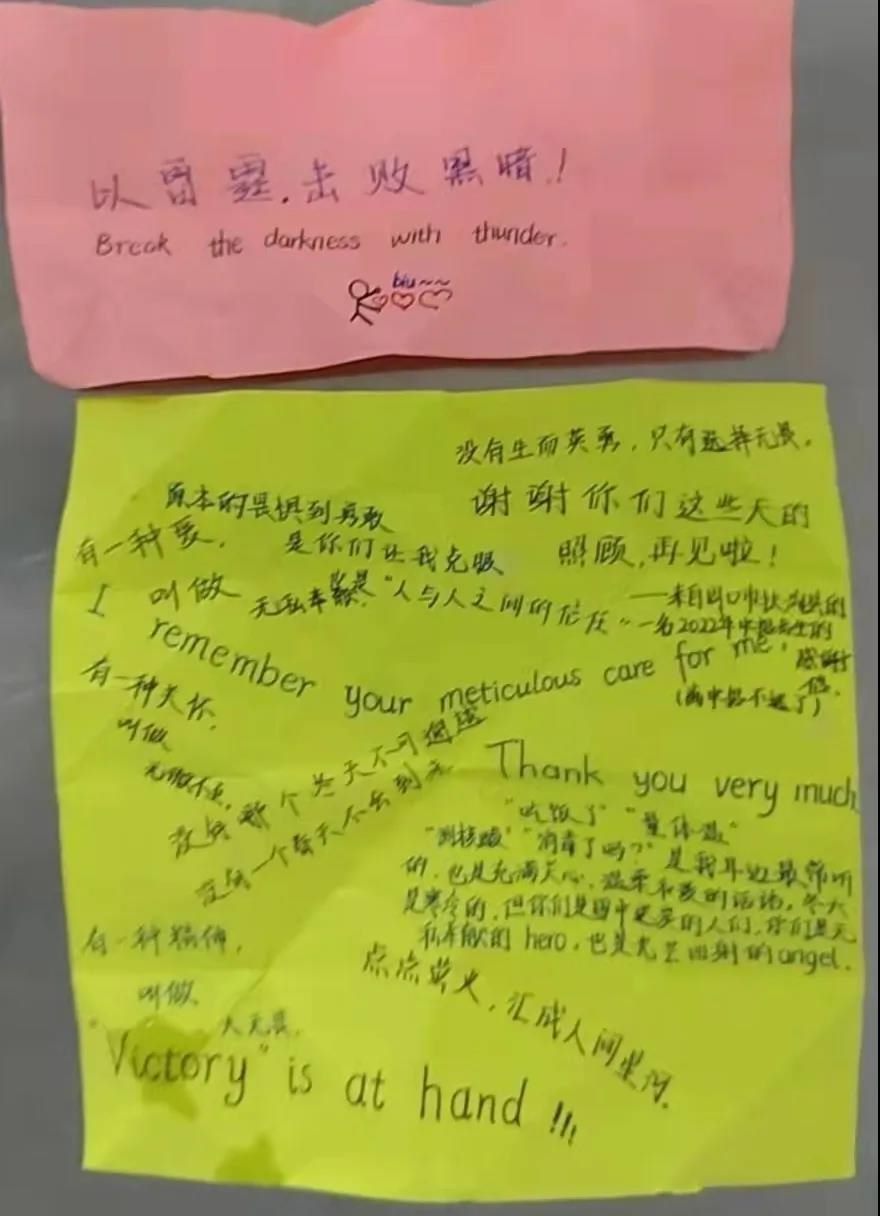 以雷霆.击败黑暗!
Break the darkness with thunder.
biu~~
没有生而英勇,只有选择无畏。
谢谢你们这些天的
照顾,再见啦!
——来自周口市扶沟县的
一名2022年中招考生的
感谢信.
(离中招不远了)
原本的畏惧到勇敢
是你们让我克服
也是“人与人之间的信任”
有一种爱,
叫做
无私奉献.
I remember your meticulous care for me,
有一种关怀,
叫做
无微不至,
没有哪个冬天不可逾越
没有一个春天不会到来
Thank you very much
“吃饭了”“量体温”
“测核酸”“消毒了吗?”是我耳边最常听
的,也是充满关心,温柔和爱的话语,冬天
是寒冷的,但你们是雪中送炭的人们,你们是无
私奉献的 hero,也是光芒四射的angel.
有一种精神,
叫做
大无畏.
点点萤火,汇成人间星河.
“Victory” is at hand!!!